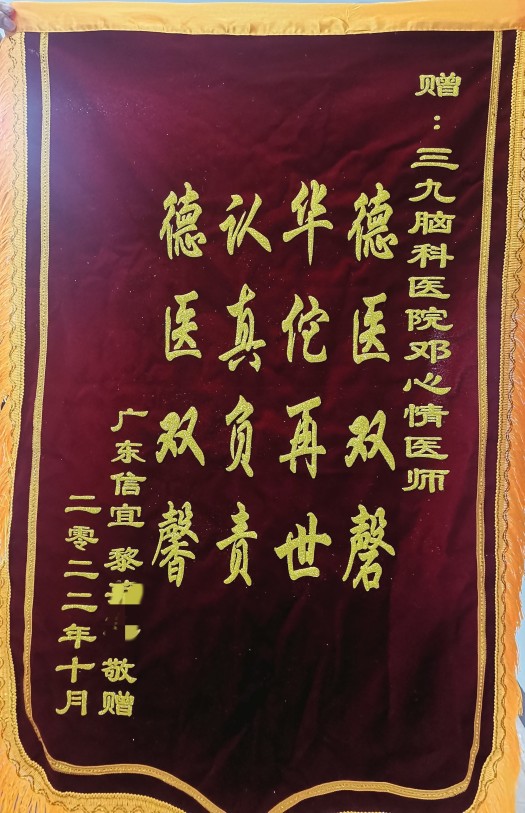 赠：三九脑科医院邓心情医师
德医双磬
华佗再世
认真负责
德医双馨
广东信宜 黎 敬赠
二零二二年十月